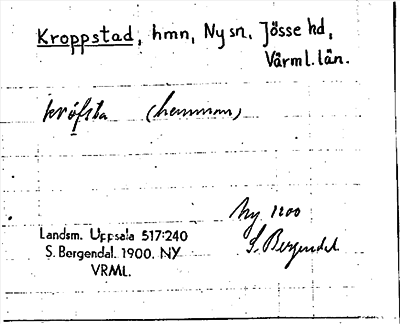 Kroppstad, hmn, Ny sn, Jösse hd,
Värml. län.
kröfsta (hemman)
Ny 1900
S. Bergendal
Landsm. Uppsala 517:240
S. Bergendal. 1900. NY
VRML.